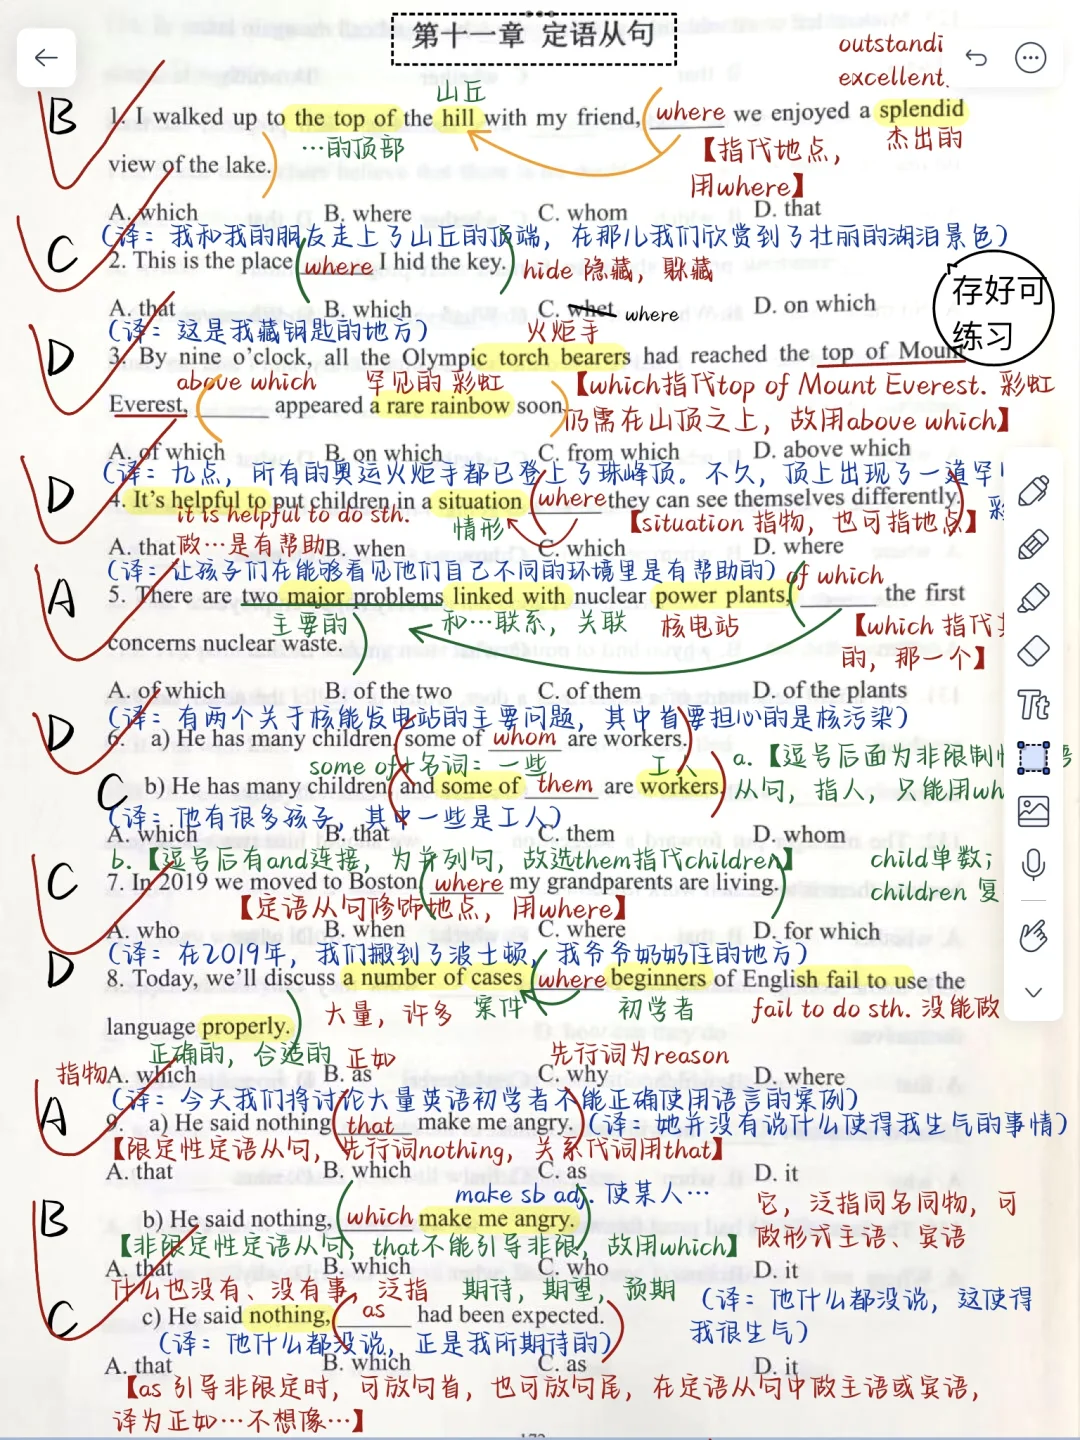 第十一章 定语从句
outstandi
excellent.
山丘
B 1. I walked up to the top of the hill with my friend, where we enjoyed a splendid
…的顶部 【指代地点, 杰出的
view of the lake.
用where】
A. which B. where C. whom D. that
(译: 我和我的朋友走上了山丘的顶端, 在那儿我们欣赏到了壮丽的湖泊景色)
C 2. This is the place where I hid the key. hide 隐藏, 躲藏
A. that B. which C. whet where D. on which
存好可
练习
(译: 这是我藏钥匙的地方) 火炬手
D 3. By nine o'clock, all the Olympic torch bearers had reached the top of Moun
above which 罕见的 彩虹 【which指代top of Mount Everest. 彩虹
Everest, ______ appeared a rare rainbow soon
仍需在山顶之上, 故用above which】
A. of which B. on which C. from which D. above which
(译: 九点, 所有的奥运火炬手都已登上了珠峰顶。不久, 顶上出现了一道罕
彩
D 4. It's helpful to put children in a situation where they can see themselves differently.
it is helpful to do sth. 情形 【situation 指物, 也可指地点】
A. that 做…是有帮助 B. when C. which D. where
(译: 让孩子们在能够看见他们自己不同的环境里是有帮助的) of which
A 5. There are two major problems linked with nuclear power plants, ______ the first
主要的 和…联系, 关联 核电站 【which 指代
concerns nuclear waste.
的, 那一个】
A. of which B. of the two C. of them D. of the plants
(译: 有两个关于核能发电站的主要问题, 其中首要担心的是核污染)
D 6. a) He has many children, some of whom are workers.
some of+名词: 一些 工人 a.【逗号后面为非限制
C b) He has many children and some of them are workers.
从句, 指人, 只能用wh
(译: 他有很多孩子, 其中一些是工人)
A. which B. that C. them D. whom
b.【逗号后有and连接, 为并列句, 故选them指代children】 child单数;
C 7. In 2019 we moved to Boston, where my grandparents are living. children 复
【定语从句修饰地点, 用where】
A. who B. when C. where D. for which
(译: 在2019年, 我们搬到了波士顿, 我爷爷奶奶住的地方)
D 8. Today, we'll discuss a number of cases where beginners of English fail to use the
大量, 许多 案件 初学者 fail to do sth. 没能做
language properly.
正确的, 合适的 正如 先行词为reason
指物 A. which B. as C. why D. where
(译: 今天我们将讨论大量英语初学者不能正确使用语言的案例)
A 9. a) He said nothing that make me angry. (译: 她并没有说什么使得我生气的事情)
【限定性定语从句, 先行词nothing, 关系代词用that】
A. that B. which C. as D. it
make sb adj. 使某人… 它, 泛指同名同物, 可
B b) He said nothing, which make me angry.
做形式主语、宾语
【非限定性定语从句, that不能引导非限, 故用which】
A. that B. which C. who D. it
什么也没有、没有事, 泛指 期待, 期望, 预期 (译: 他什么都没说, 这使得
C c) He said nothing, as had been expected.
我很生气)
(译: 他什么都没说, 正是我所期待的)
A. that B. which C. as D. it
【as 引导非限定时, 可放句首, 也可放句尾, 在定语从句中做主语或宾语,
译为正如…不想像…】
Tt